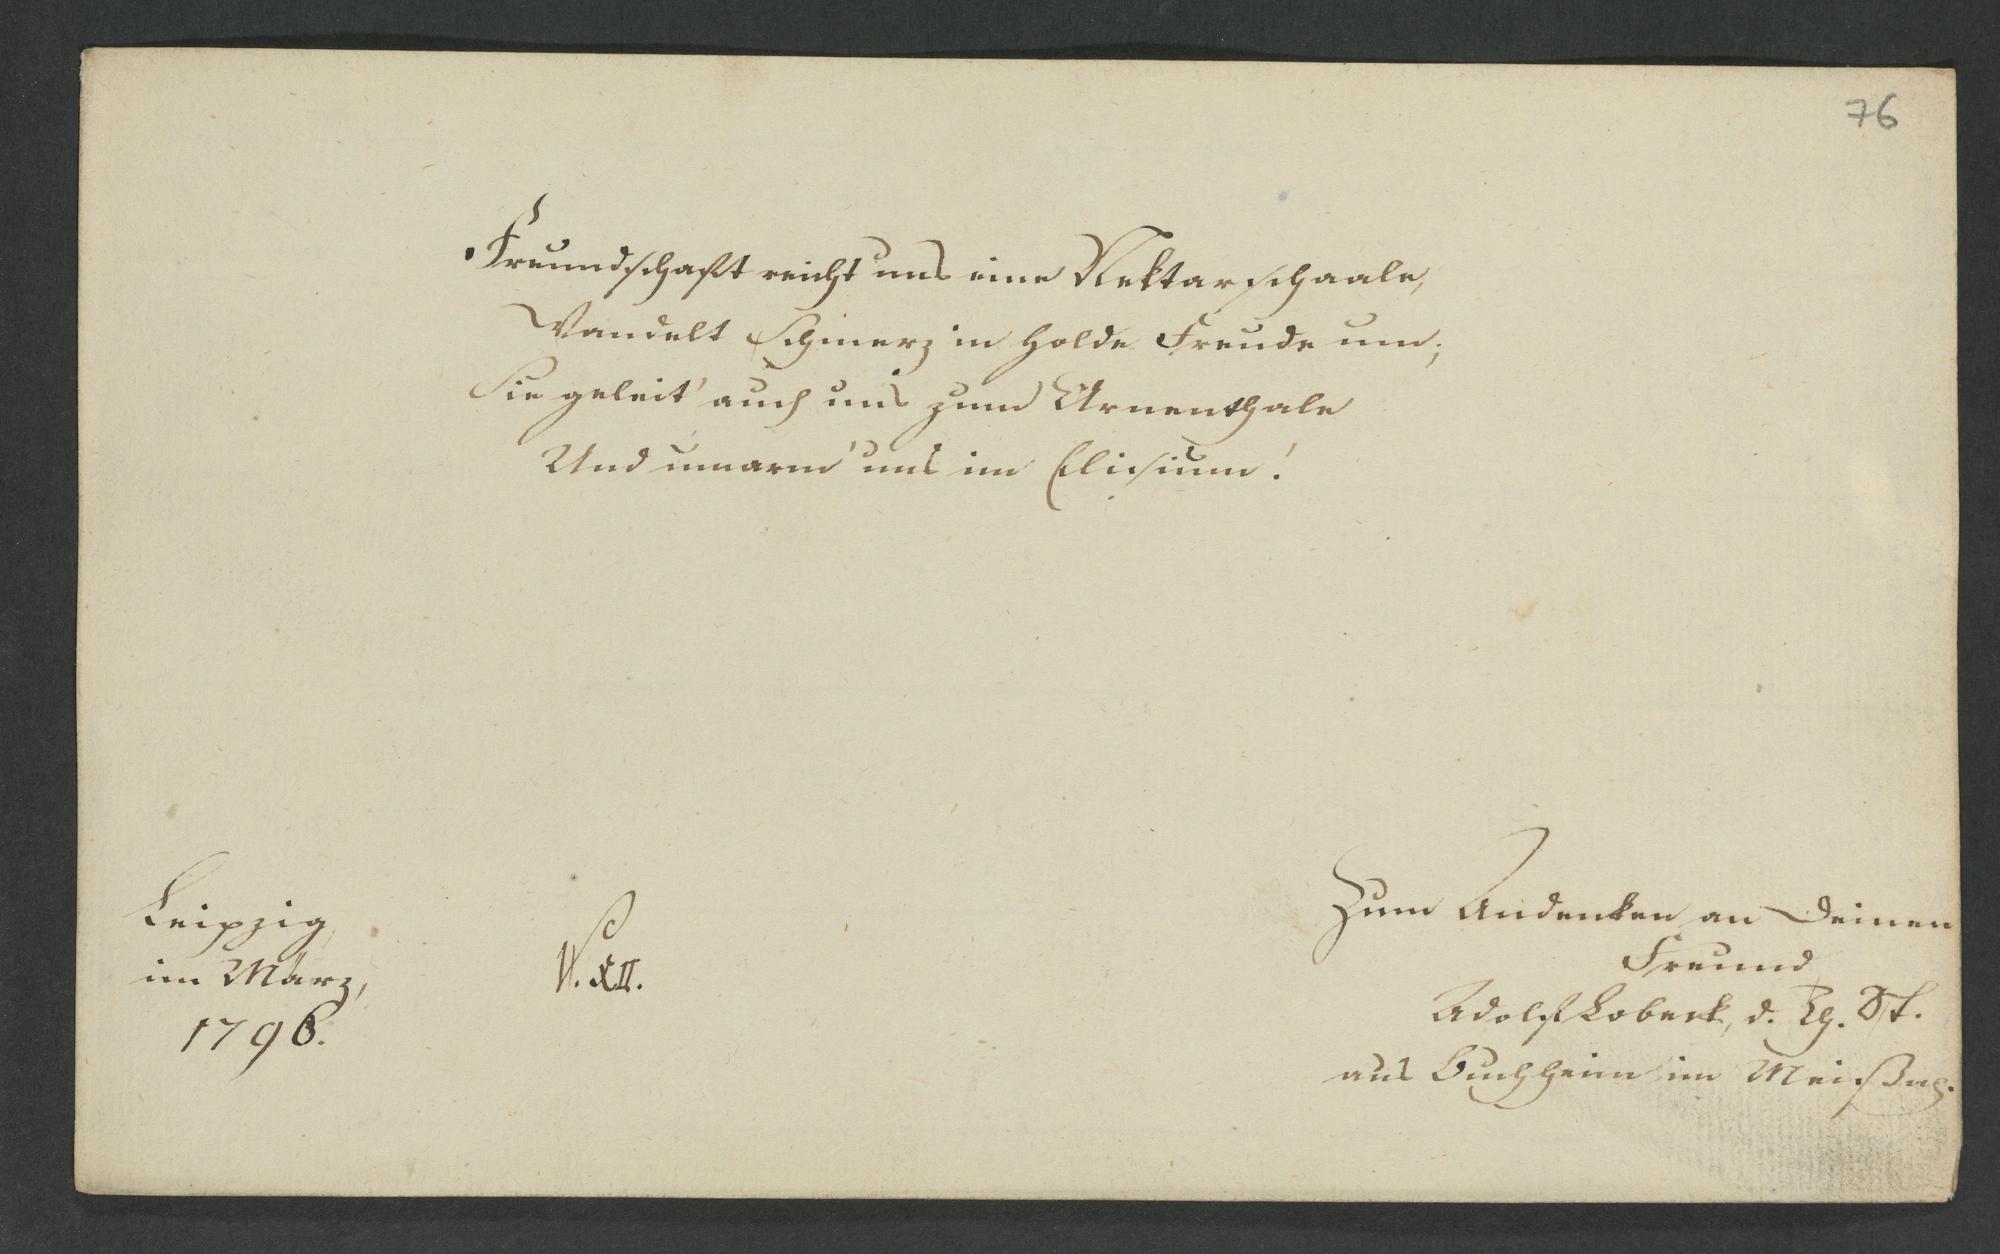 76
Freundschaft reicht uns eine Nektarschaale,
Wandelt Schmerz in holde Freude um;
Sie geleit' auch uns zum Urnenthale
Und umarm' uns im Elisium!
Leipzig
im März,
1796.
XII.
Zum Andenken an Deinen
Freund
Adolf Lobeck, d. Rg. St.
aus Buchheim im Meißn.